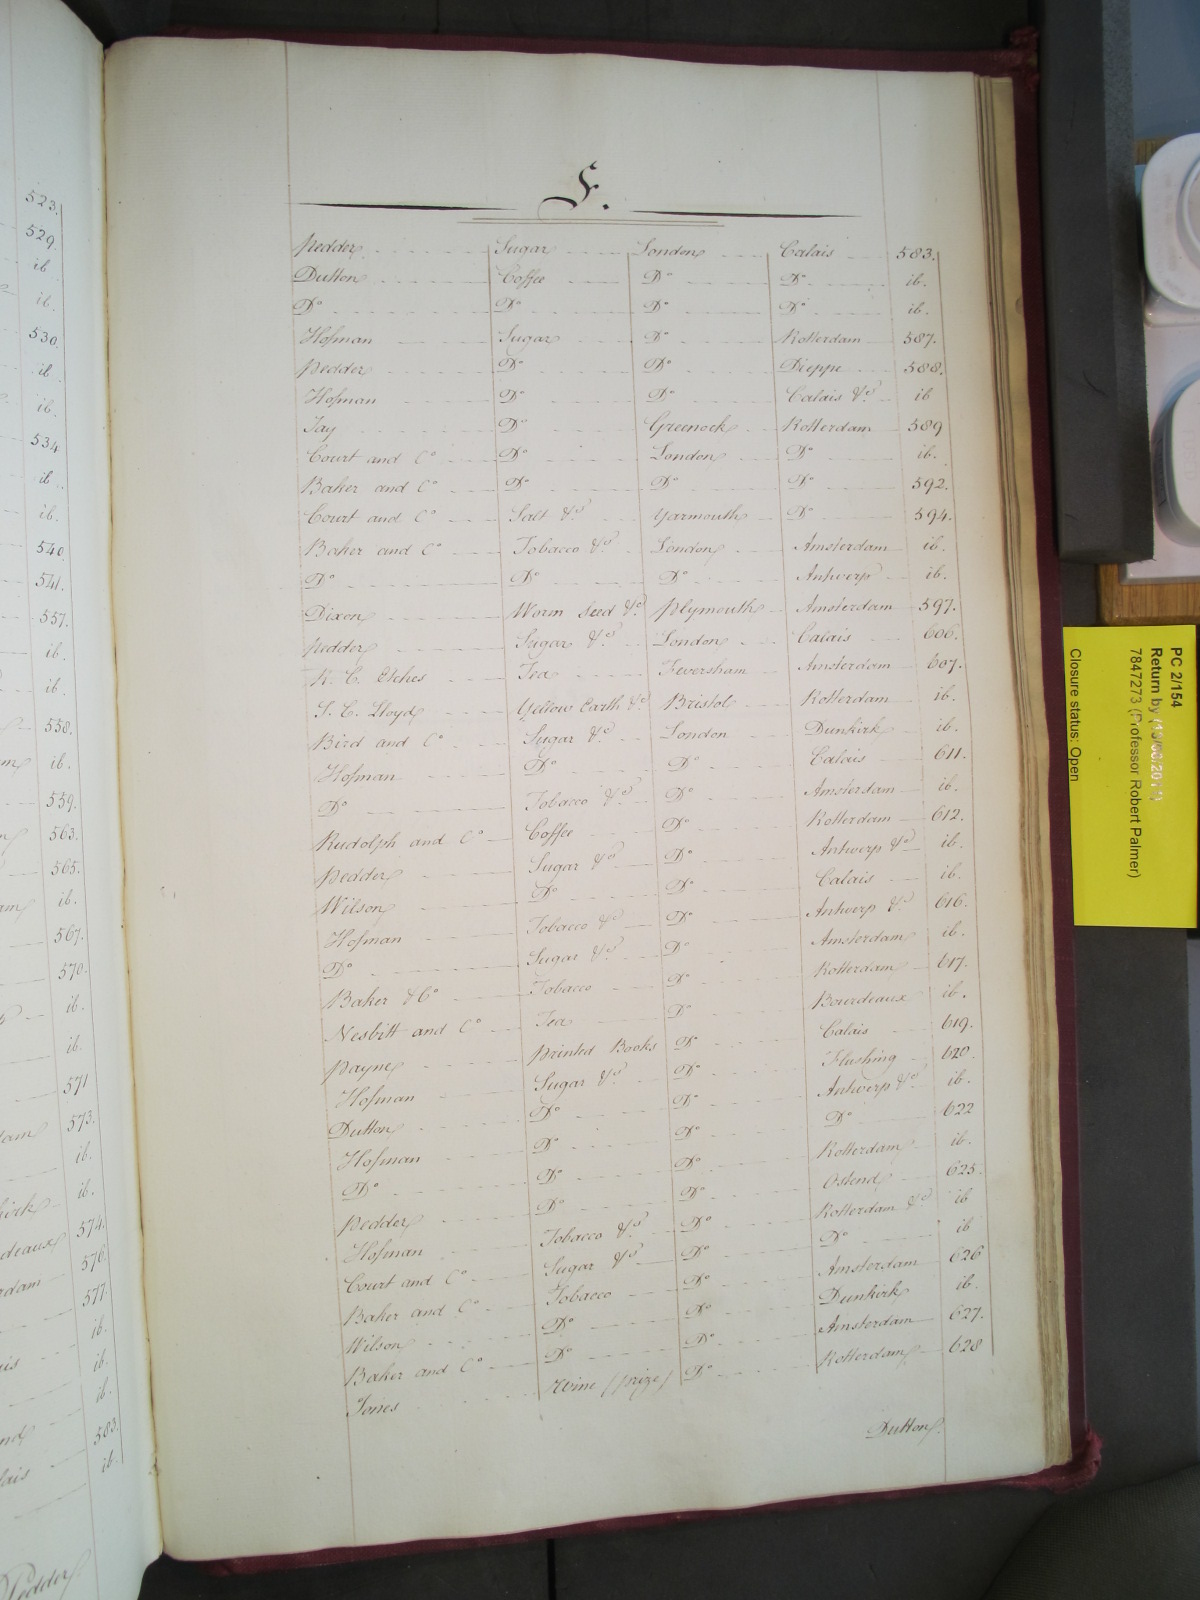 523.
529
ib
ib.
530.
ib.
ib.
534
ib.
ib.
540
541.
557.
ib.
ib.
558.
ib.
559.
563.
565.
ib.
567.
570.
ib.
ib.
571
573.
ib.
ib.
574.
576
577.
ib.
ib.
ib.
583.
ib.
Pedder
S.
Pedder Sugar London Calais 583.
Dutton Coffee Do Do ib.
Do Do Do Do ib.
Hofman Sugar Do Rotterdam 587.
Pedder Do Do Dieppe 588.
Hofman Do Do Calais &c ib
Jay Do Greenock Rotterdam 589
Court and Co Do London Do ib.
Baker and Co Do Do Do 592.
Court and Co Salt &c Yarmouth Do 594.
Baker and Co Tobacco &c London Amsterdam ib.
Do Do Do Antwerp ib.
Dixon Worm Seed &c Plymouth Amsterdam 597.
Pedder Sugar &c London Calais 606.
R. C. Etches Tea Feversham Amsterdam 607.
S. C. Lloyd Yellow Earth &c Bristol Rotterdam ib.
Bird and Co Sugar &c London Dunkirk ib.
Hofman Do Do Calais 611.
Do Tobacco &c Do Amsterdam ib.
Rudolph and Co Coffee Do Rotterdam 612.
Pedder Sugar &c Do Antwerp &c ib.
Wilson Do Do Calais ib.
Hofman Tobacco &c Do Antwerp &c 616.
Do Sugar &c Do Amsterdam ib.
Baker & Co Tobacco Do Rotterdam 617.
Nesbitt and Co Tea Do Bourdeaux ib.
Payne Printed Books Do Calais 619.
Hofman Sugar &c Do Flushing 620.
Dutton Do Do Antwerp &c ib.
Hofman Do Do Do 622
Do Do Do Rotterdam ib.
Pedder Do Do Ostend 625.
Hofman Tobacco &c Do Rotterdam &c ib
Court and Co Sugar &c Do Do ib
Baker and Co Tobacco Do Amsterdam 626
Wilson Do Do Dunkirk ib.
Baker and Co Do Do Amsterdam 627.
Jones Wine (prize) Do Rotterdam 628
Dutton
PC 2/154
Return by
7847273 (Professor Robert Palmer)
Closure status: Open